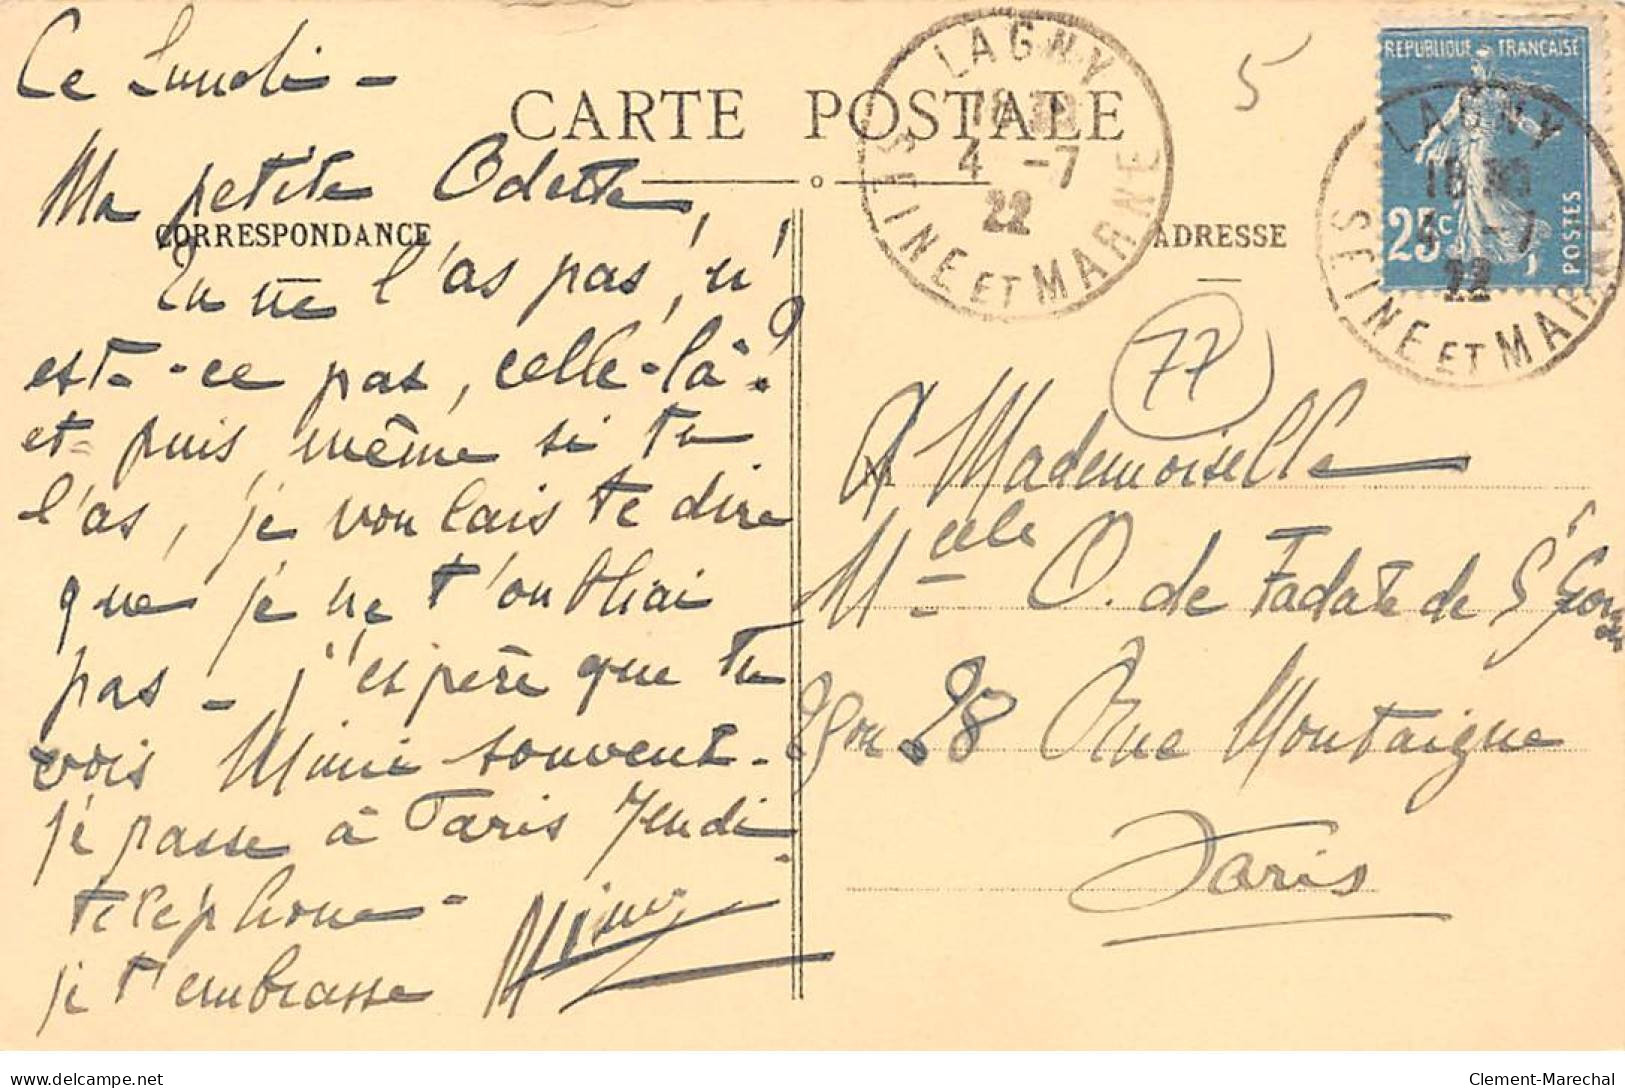 Ce Lundi -
CARTE POSTALE
Ma petite Odette,
CORRESPONDANCE
Tu ne l'as pas, n'
est-ce pas, celle-là?
et puis, même si tu
l'as, je voulais te dire
que je ne t'oubliai
pas - j'espère que tu
vois Mimi souvent -
je passe à Paris Jeudi -
telephone -
je t'embrasse
LAGNY
18
4 -7
22
SEINE ET MARNE
5
REPUBLIQUE FRANÇAISE
25c
POSTES
LAGNY
4 -7
22
SEINE ET MARNE
ADRESSE
77
A Mademoiselle
Melle O. de Fadate de St Geor
28 Rue Montaigne
Paris
delcampe.net
Clement-Marechal